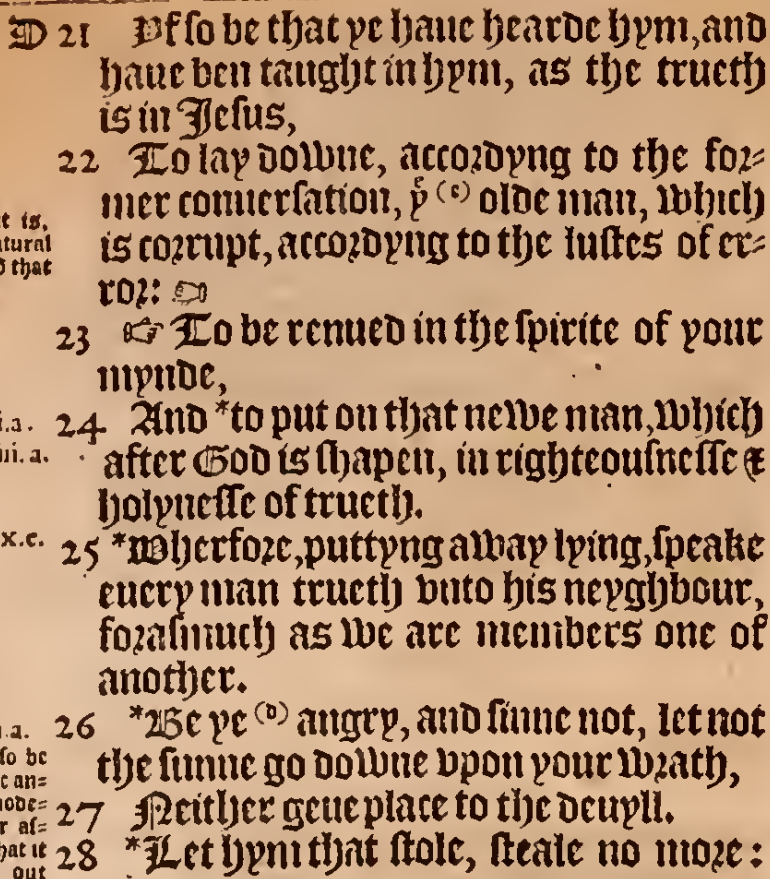 D 21 Yf ſo be that ye haue hearde hym, and
haue ben taught in hym, as the trueth
is in Jeſus,
22 To lay downe, accordyng to the for=
mer conuerſation, yͤ (c) olde man, which
is corrupt, accordyng to the luſtes of er=
ror: ☜
23 ☞ To be renued in the ſpirite of your
mynde,
24 And *to put on that newe man, which
after God is ſhapen, in righteouſneſſe &
holyneſſe of trueth.
25 *Wherfore, puttyng away lying, ſpeake
euery man trueth vnto his neyghbour,
foraſmuch as we are members one of
another.
26 *Be ye (d) angry, and ſinne not, let not
the ſunne go downe vpon your wrath,
27 Neither geue place to the deuyll.
28 *Let hym that ſtole, ſteale no more:
t is,
atural
d that
i.a.
iii.a.
x.c.
.a.
ſo be
c an=
mode=
r aſ=
hat it
out